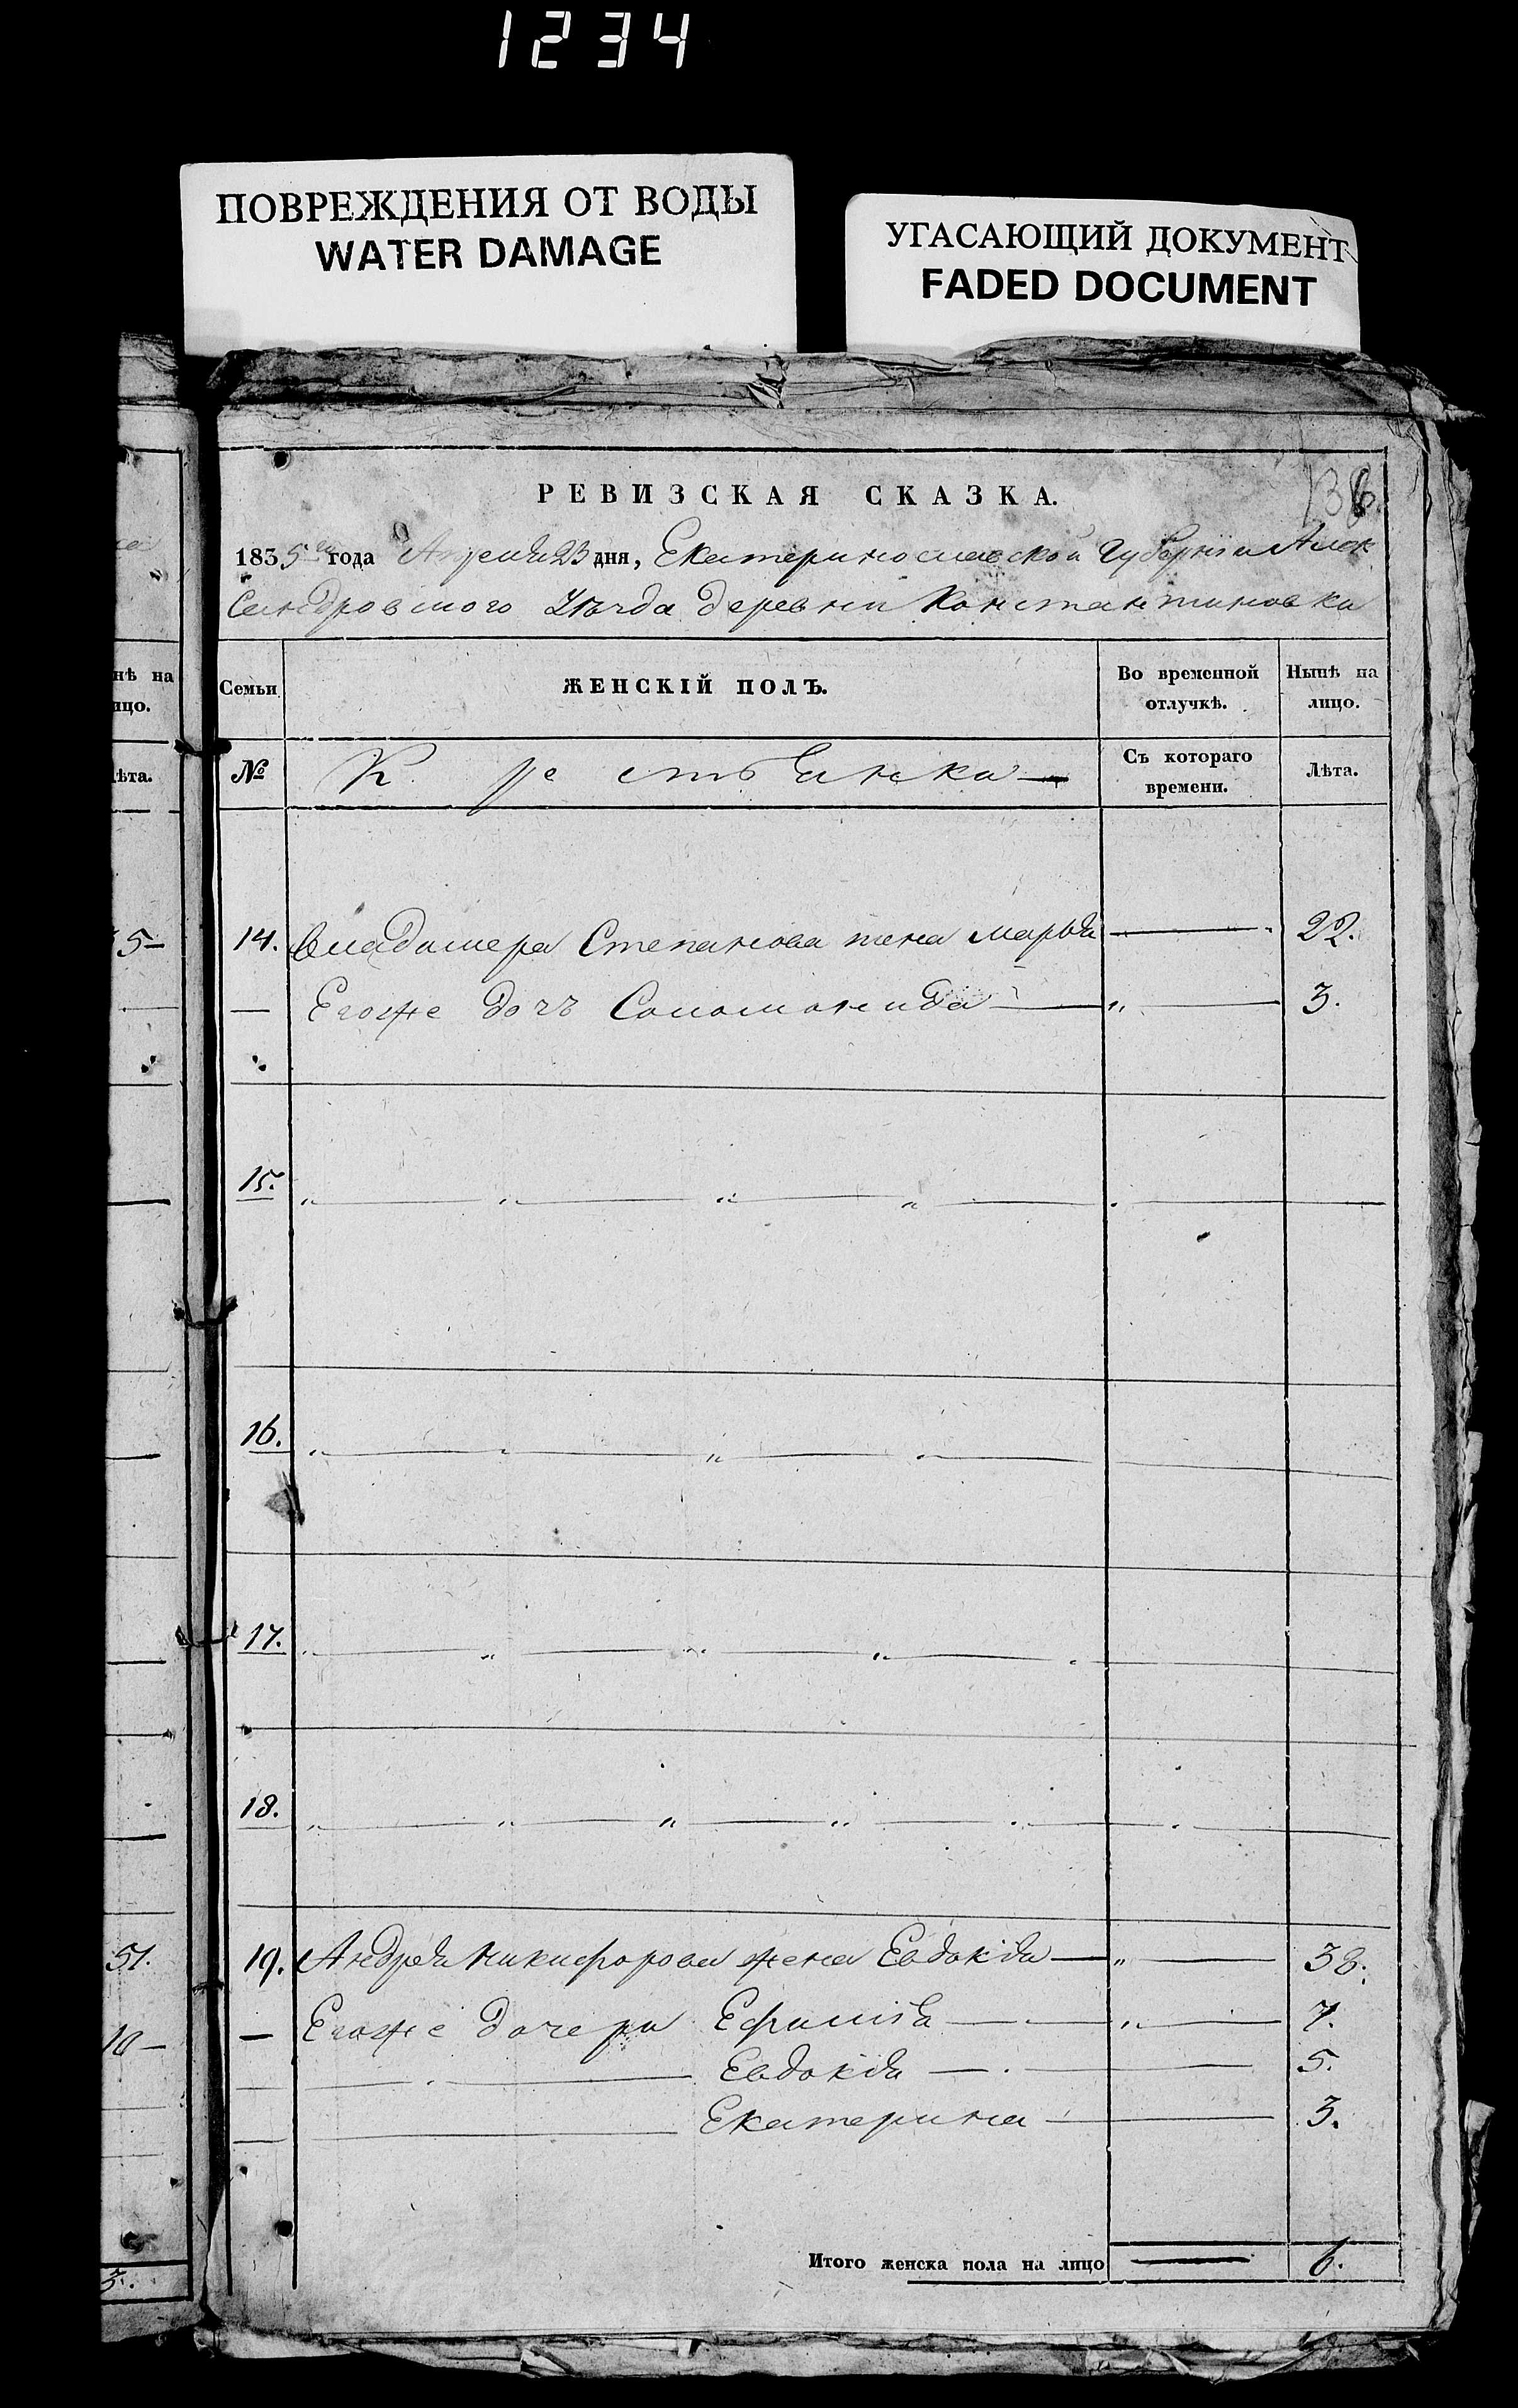 1234
ПОВРЕЖДЕНИЯ ОТ ВОДЫ
WATER DAMAGE
УГАСАЮЩИЙ ДОКУМЕНТ
FADED DOCUMENT
РЕВИЗСКАЯ СКАЗКА.
1835 года Апреля 23 дня, Екатериославской Губерніи Алек
сандровского Уѣзда деревни Константиновки
нѣ на
ицо.
Семьи
ЖЕНСКІЙ ПОЛЪ.
Во временной отлучкѣ.
Нынѣ на лицо.
ѣта.
№
К ре стьянка
Съ котораго времени.
Лѣта.
5
14. Владимера Степанова жена Марья 22.
Егоже дочь Соломонида 3.
15.
16.
17.
18.
51.
19. Андрея Никифорова жена Евдокія 38.
10
Егоже дочери Ефимія 7.
Евдокія 5.
Екатерина 3.
Итого женска пола на лицо 6.
3.